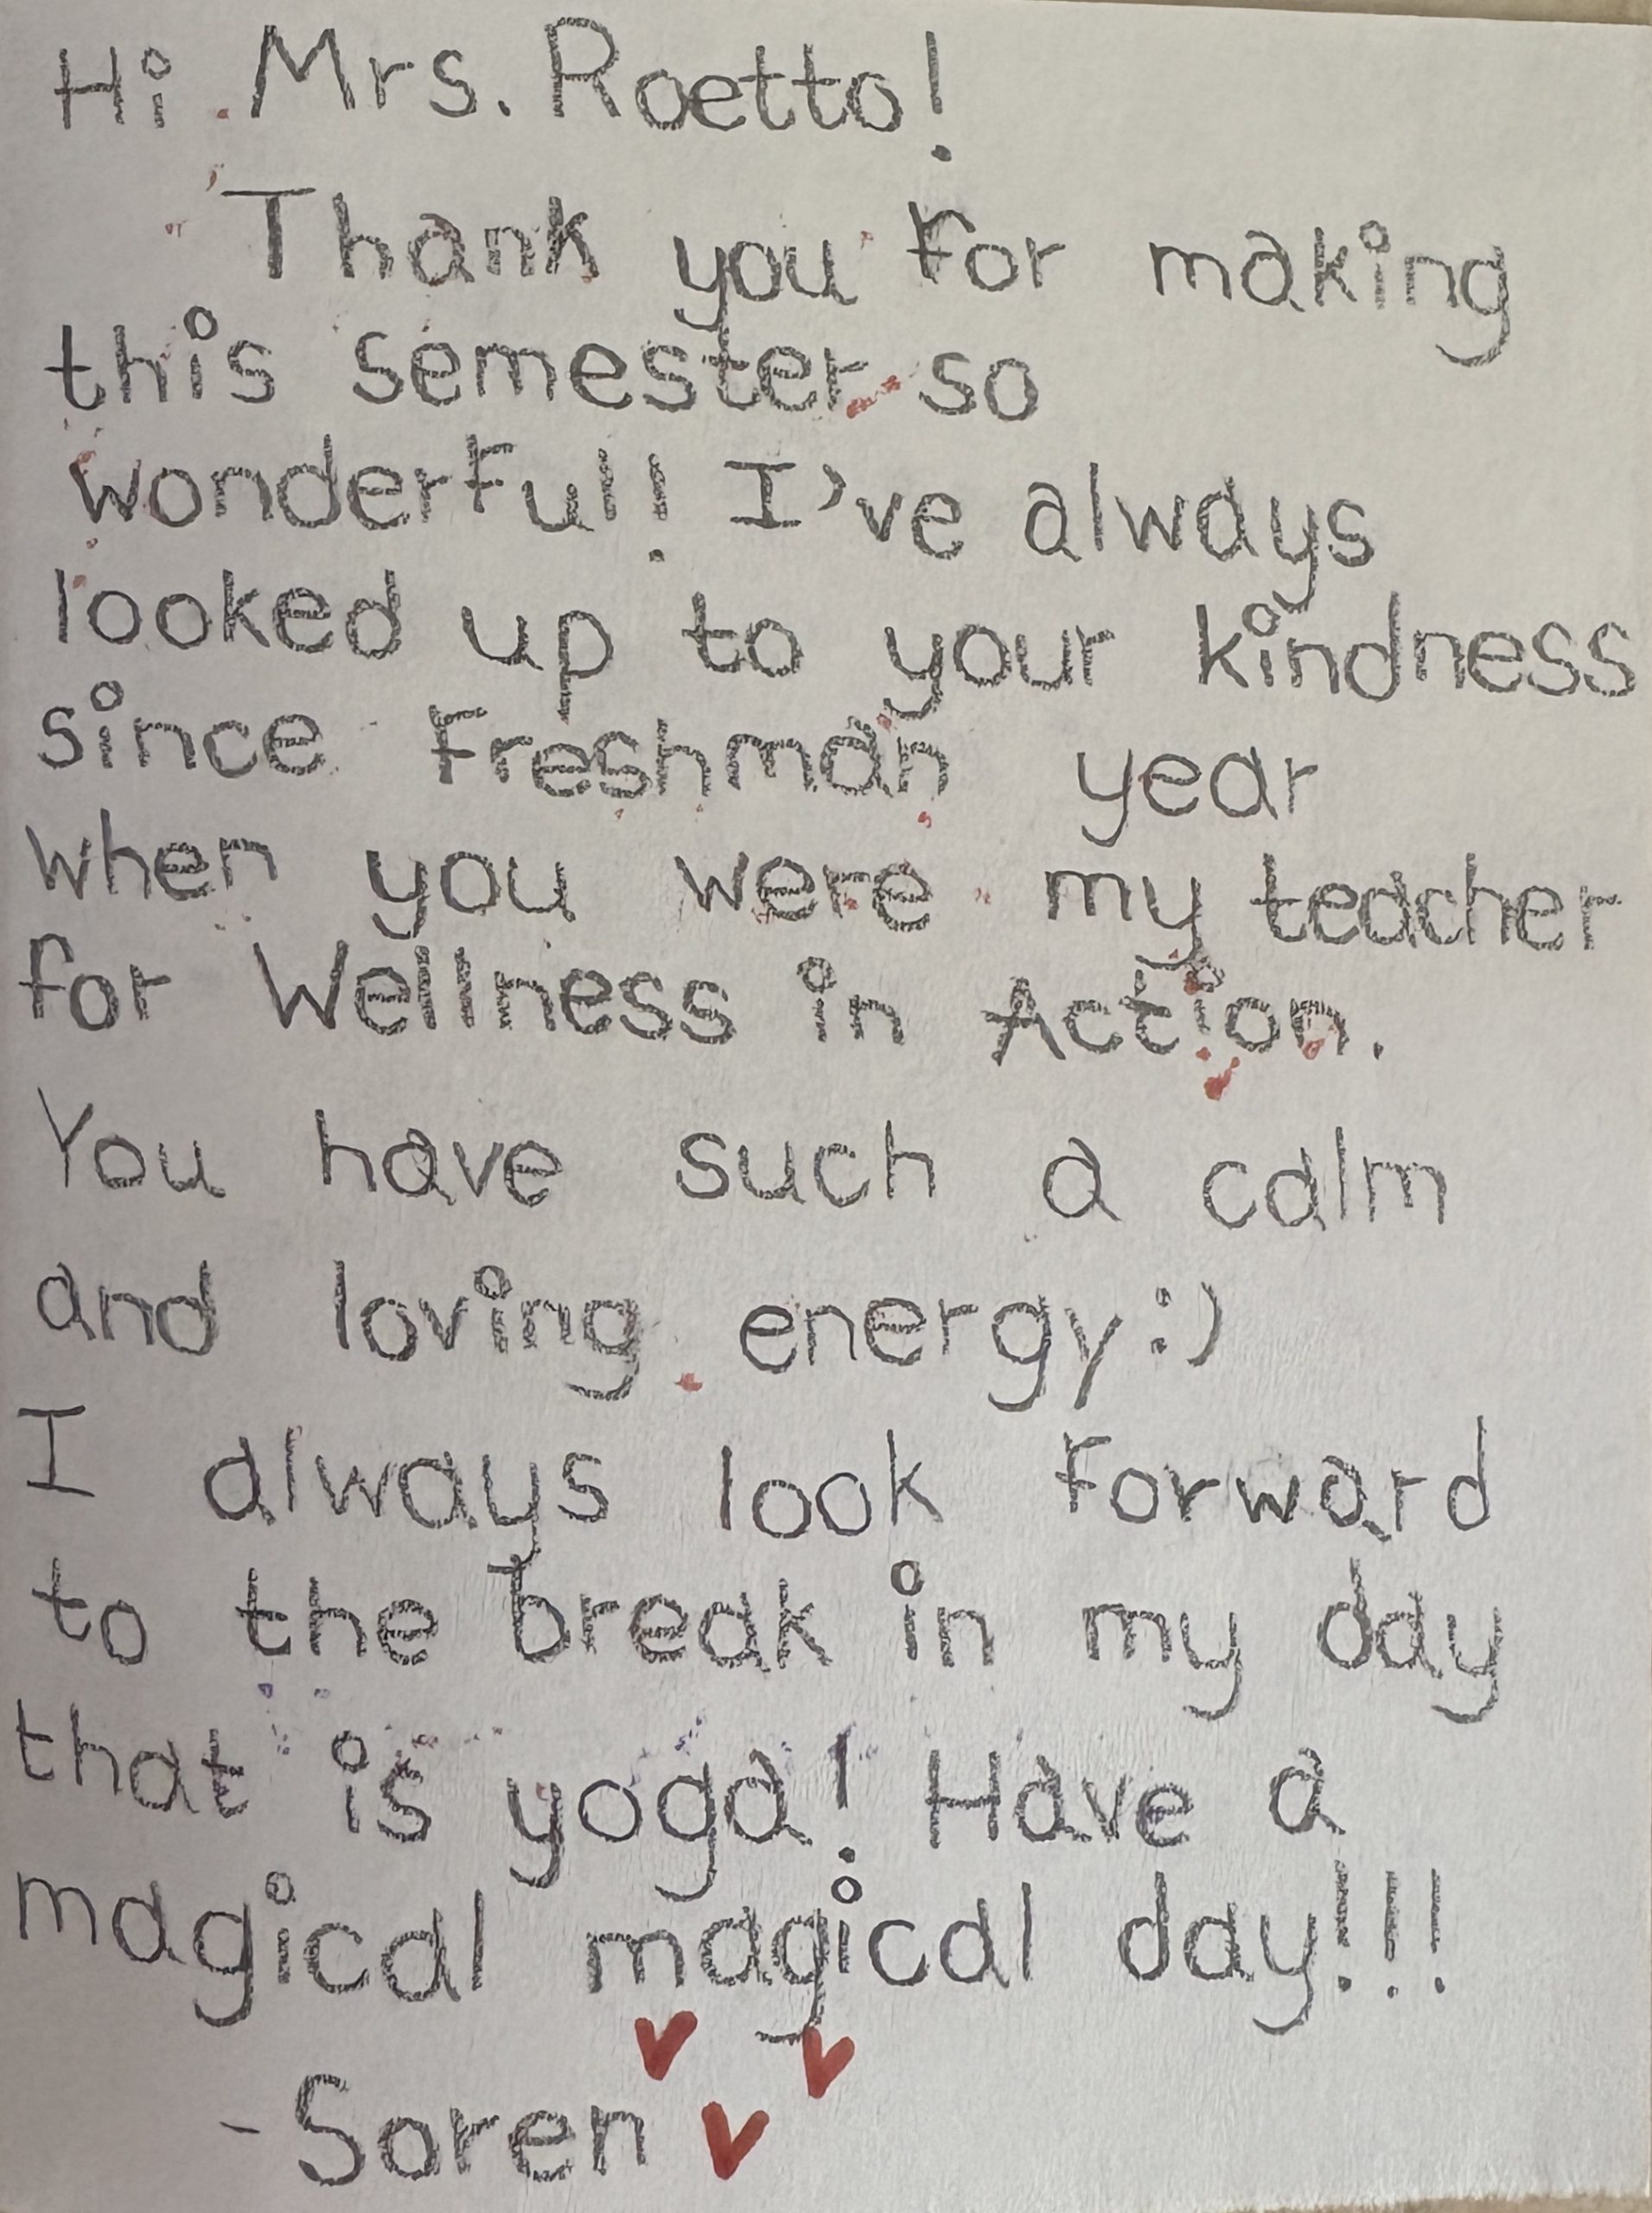 Hi Mrs. Roetto!
Thank you for making
this semester so
wonderful! I've always
looked up to your kindness
since freshman year
when you were my teacher
for Wellness in Action.
You have such a calm
and loving energy:)
I always look forward
to the break in my day
that is yoga! Have a
magical magical day!!!
-Soren